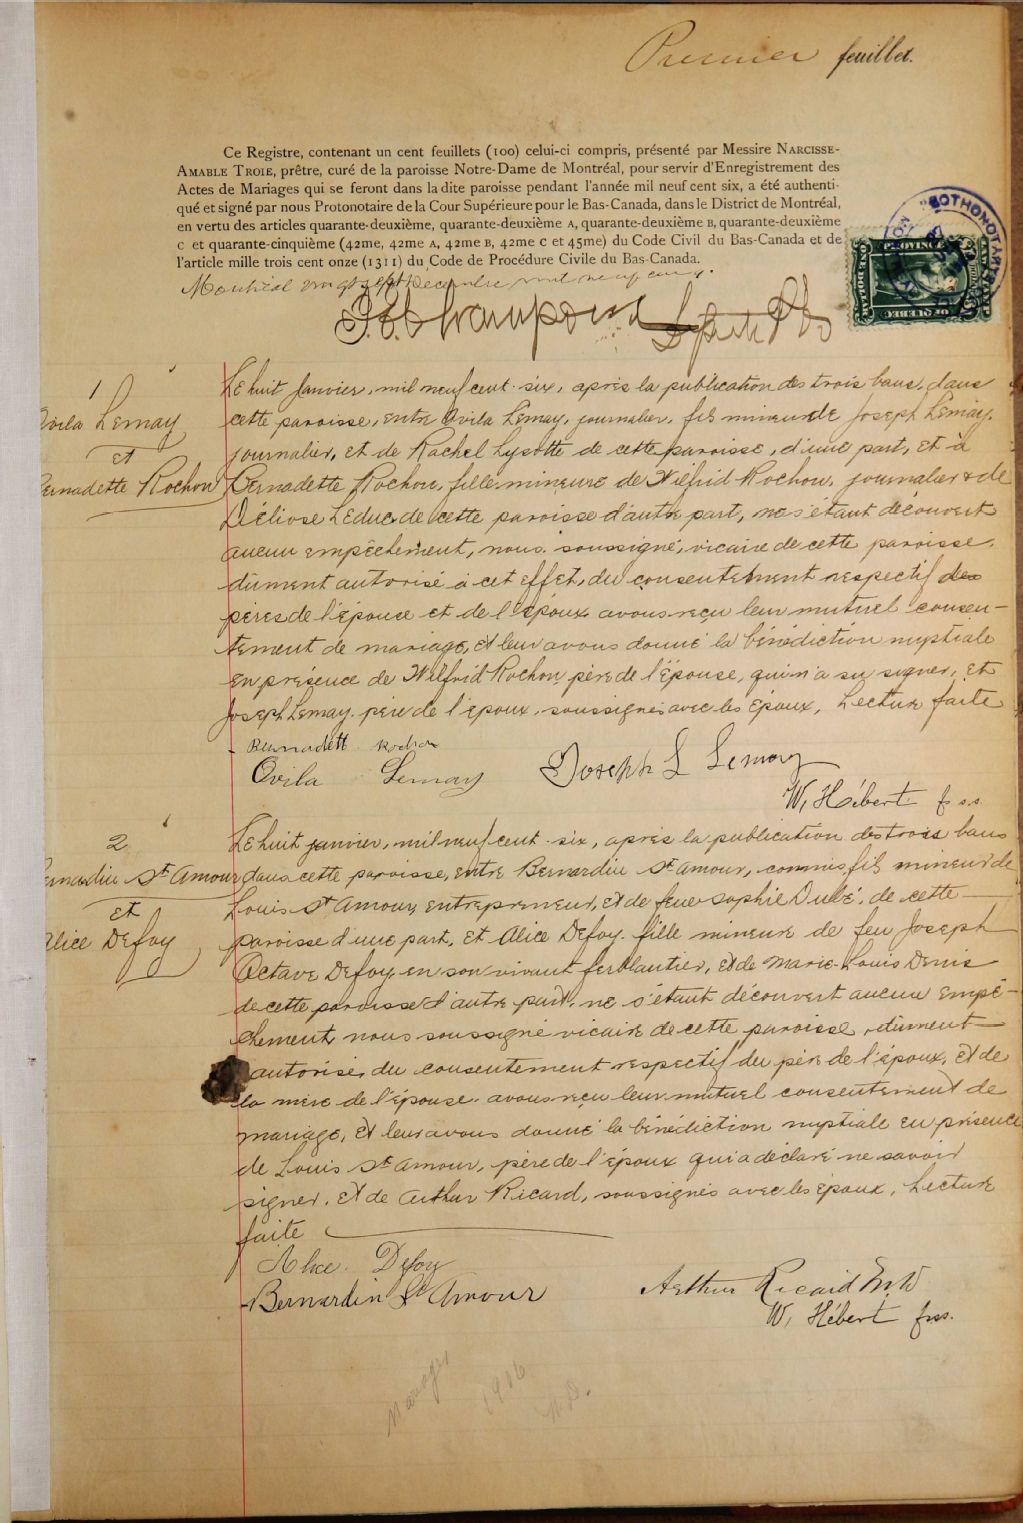 Premier feuillet.
Ce Registre, contenant un cent feuillets (100) celui-ci compris, présenté par Messire NARCISSE-
AMABLE TROIE, prêtre, curé de la paroisse Notre-Dame de Montréal, pour servir d'Enregistrement des
Actes de Mariages qui se feront dans la dite paroisse pendant l'année mil neuf cent six, a été authenti-
qué et signé par nous Protonotaire de la Cour Supérieure pour le Bas-Canada, dans le District de Montréal,
en vertu des articles quarante-deuxième, quarante-deuxième A, quarante-deuxième B, quarante-deuxième
C et quarante-cinquième (42me, 42me A, 42me B, 42me C et 45me) du Code Civil du Bas-Canada et de
l'article mille trois cent onze (1311) du Code de Procédure Civile du Bas-Canada.
Montréal vingt sept Décembre mil neuf cent
ONE DOLLAR
1
Ovila Lemay
et
Bernadette Rochon
Le huit Janvier, mil neuf cent six, après la publication des trois bans, dans
cette paroisse, entre Ovila Lemay, journalier, fils mineur de Joseph Lemay,
journalier, et de Rachel Lysotte de cette paroisse, d'une part, et à
Bernadette Rochon, fille mineure de Wilfrid Rochon, journalier & de
Déliose Leduc, de cette paroisse d'autre part, ne s'étant découvert
aucun empêchement, nous soussigné, vicaire de cette paroisse,
dûment autorisé à cet effet, du consentement respectif des
pères de l'épouse et de l'époux avons reçu leur mutuel consen-
tement de mariage, et leur avons donné la bénédiction nuptiale
en présence de Wilfrid Rochon, père de l'épouse, qui n'a su signer, et
Joseph Lemay, père de l'époux, soussignés avec les époux, Lecture faite
Bernadett Rochon
Ovila Lemay Joseph L Lemay
W. Hébert p.s.s.
2
Bernardin St Amour
et
Alice Defoy
Le huit janvier, mil neuf cent six, après la publication des trois bans
dans cette paroisse, entre Bernardin St Amour, commis, fils mineur de
Louis St Amour, entrepreneur, et de feue Sophie Dubé, de cette
paroisse d'une part, et Alice Defoy, fille mineure de feu Joseph
Octave Defoy en son vivant ferblantier, et de Marie-Louis Denis
de cette paroisse d'autre part, ne s'étant découvert aucun empê-
chement, nous soussigné vicaire de cette paroisse, dûment
autorisé, du consentement respectif du père de l'époux, et de
la mère de l'épouse avons reçu leur mutuel consentement de
mariage, et leur avons donné la bénédiction nuptiale en présence
de Louis St Amour, père de l'époux qui a déclaré ne savoir
signer, et de Arthur Ricard, soussignés avec les époux, Lecture
faite
Alice Defoy
Bernardin St Amour Arthur Ricard
W. Hébert pss.
Mariages 1906 N.D.